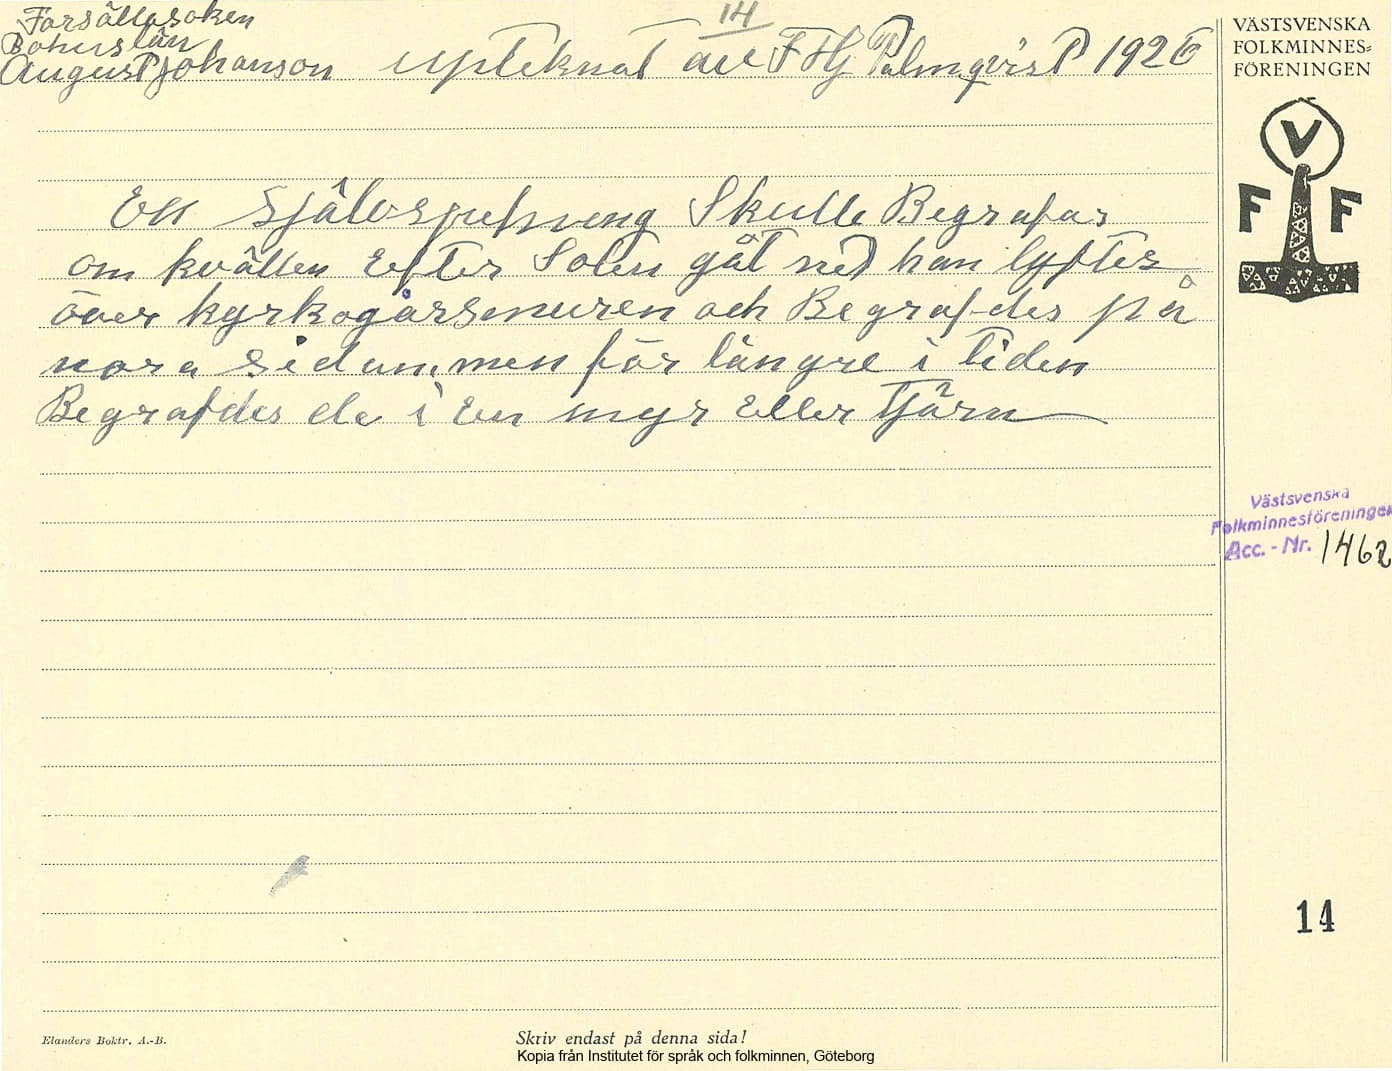 14
Forsällasoken
Bohuslän
August Johanson upteknat av F Hj Palmqvist 1926
VÄSTSVENSKA
FOLKMINNES-
FÖRENINGEN
V
F F
En Självspilneng Skulle Begrafas
om kvällen Efter Solen gåt ned han lyftes
över kyrkogårsmuren och Begrafdes på
nora sidan, men för längre i tiden
Begrafdes de i En myr Eller Tjärn
Västsvenska
Folkminnesföreningen
Acc. - Nr. 1462
14
Elanders Boktr. A.-B.
Skriv endast på denna sida!
Kopia från Institutet för språk och folkminnen, Göteborg